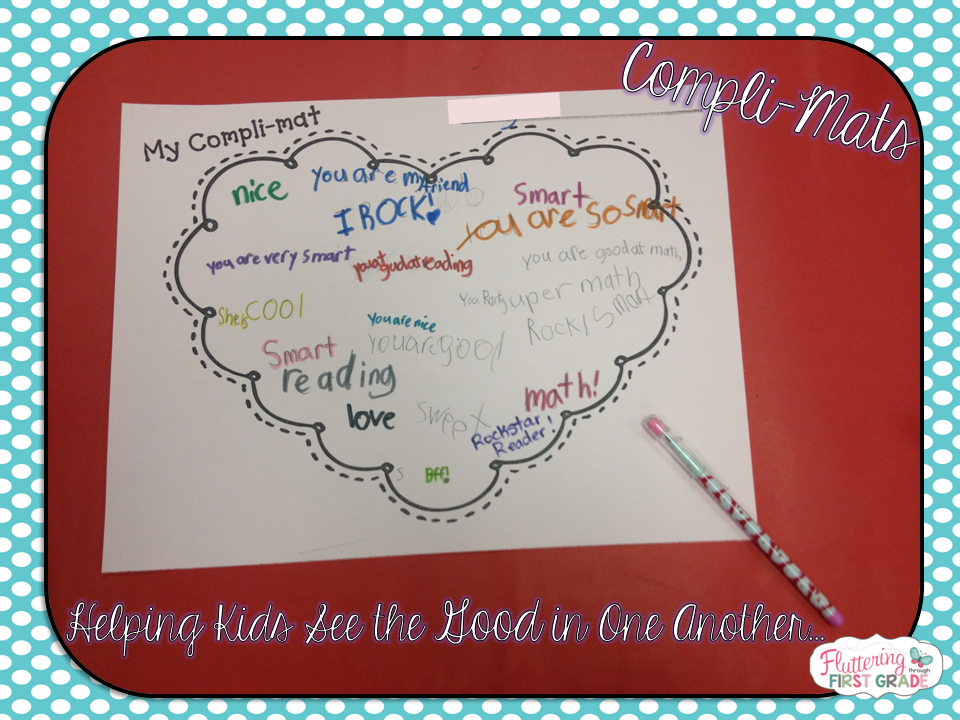 Compli-Mats
My Compli-mat
nice
you are my friend
I ROCK!
Smart
You are so smart
you are very smart
reading
you are good at math
She is COOl
You Rock
super math
You are nice
Rock! Smart
Smart
youaregool
reading
love
sweet
math!
Rockstar!
Reader!
Bff!
Helping Kids See the Good in One Another...
Fluttering
through
FIRST GRADE